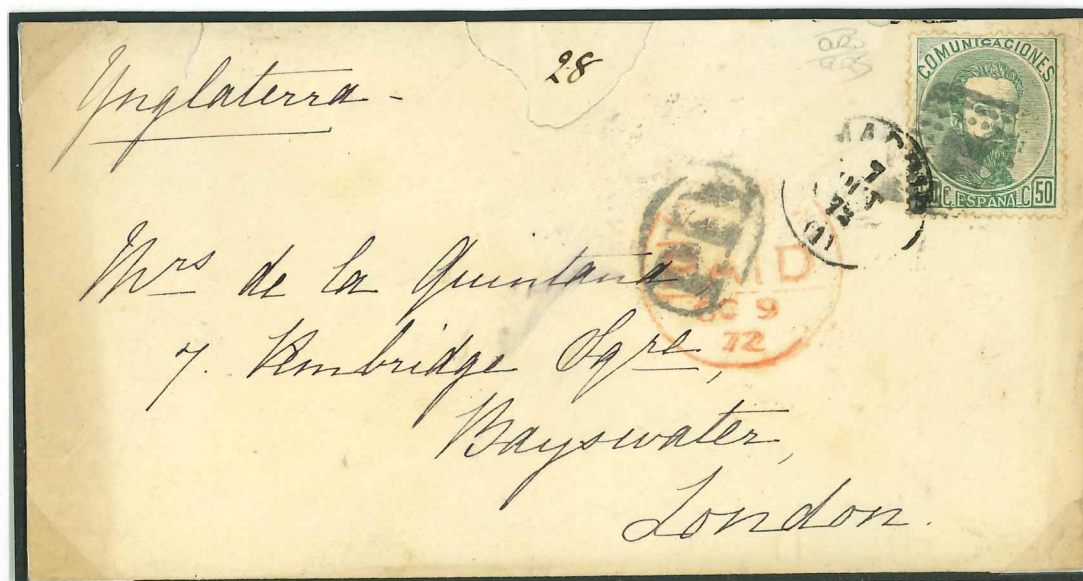 28
Ynglaterra -
COMUNICACIONES
C. ESPAÑA C 50
MADRID
7
OCT
72
(1)
PD
PAID
OC 9
72
Mrs de la Quintana,
7. Kembridge Sqre,
Bayswater,
London.